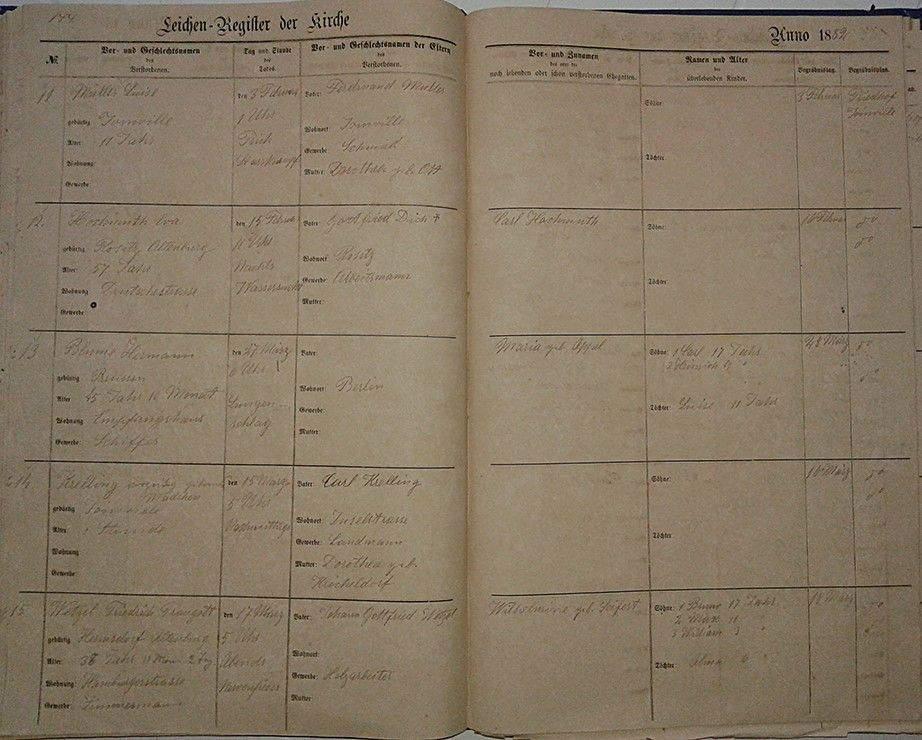 144
Leichen-Register der Kirche
Anno 1859
№
Vor- und Geschlechtsnamen des Verstorbenen.
Tag und Stunde des Todes.
Vor- und Geschlechtsnamen der Eltern des Verstorbenen.
Vor- und Zunamen des oder der noch lebenden oder schon verstorbenen Ehegatten.
Namen und Alter der überlebenden Kinder.
Begräbnißtag.
Begräbnißplatz.
11
Müller Luise
gebürtig Joinville
Alter: 11 Jahr
Wohnung:
Gewerbe:
den 3 Februar
1 Uhr
Früh
Vater: Ferdinand Müller
Wohnort: Joinville
Gewerbe: Schmidt
Mutter: Dorothea geb. Ott
Söhne:
Töchter:
3 Februar
Friedhof
Joinville
12
Hochmuth Eva
gebürtig Rositz Altenburg
Alter: 57 Jahr
Wohnung Deutschestrasse
Gewerbe:
den 15 Februar
11 Uhr
Nachts
Wassersucht
Vater: Gottfried Dich +
Wohnort: Rositz
Gewerbe: Arbeitsmann
Mutter:
Carl Hochmuth
Söhne:
Töchter:
Februar
do
do
13
Blume Hermann
gebürtig
Alter 45 Jahr 10 Monat
Wohnung Empfangshaus
Gewerbe: Schiffer
den 27 März
6 Uhr
Lungen-
schlag
Vater:
Wohnort: Berlin
Gewerbe:
Mutter:
Maria geb. Appel
Söhne: 1 Carl 17 Jahr
2 Heinrich
Töchter: Luise 11 Jahr
28 März
do
do
14
Krelling
Mädchen
gebürtig Joinville
Alter: Stunde
Wohnung
Gewerbe:
den 15 März
5 Uhr
Nachmittags
Vater: Carl Krelling
Wohnort: Inselstrasse
Gewerbe: Landmann
Mutter: Dorothea geb.
Söhne:
Töchter:
16 März
do
do
15
Wetzel Friedrich Traugott
gebürtig
Alter: 38 Jahr 11 Mon 2 Tag
Wohnung: Hamburgerstrasse
Gewerbe: Zimmermann
den 17 März
5 Uhr
Abends
Nervenfieber
Vater: Johann Gottfried Wetzel
Wohnort:
Gewerbe: Holzarbeiter
Mutter:
Wilhelmine geb. Seifert
Söhne: 1 Bruno 17 Jahr
2 Max 11
3 William 3
Töchter: Alma 6
18 März
do